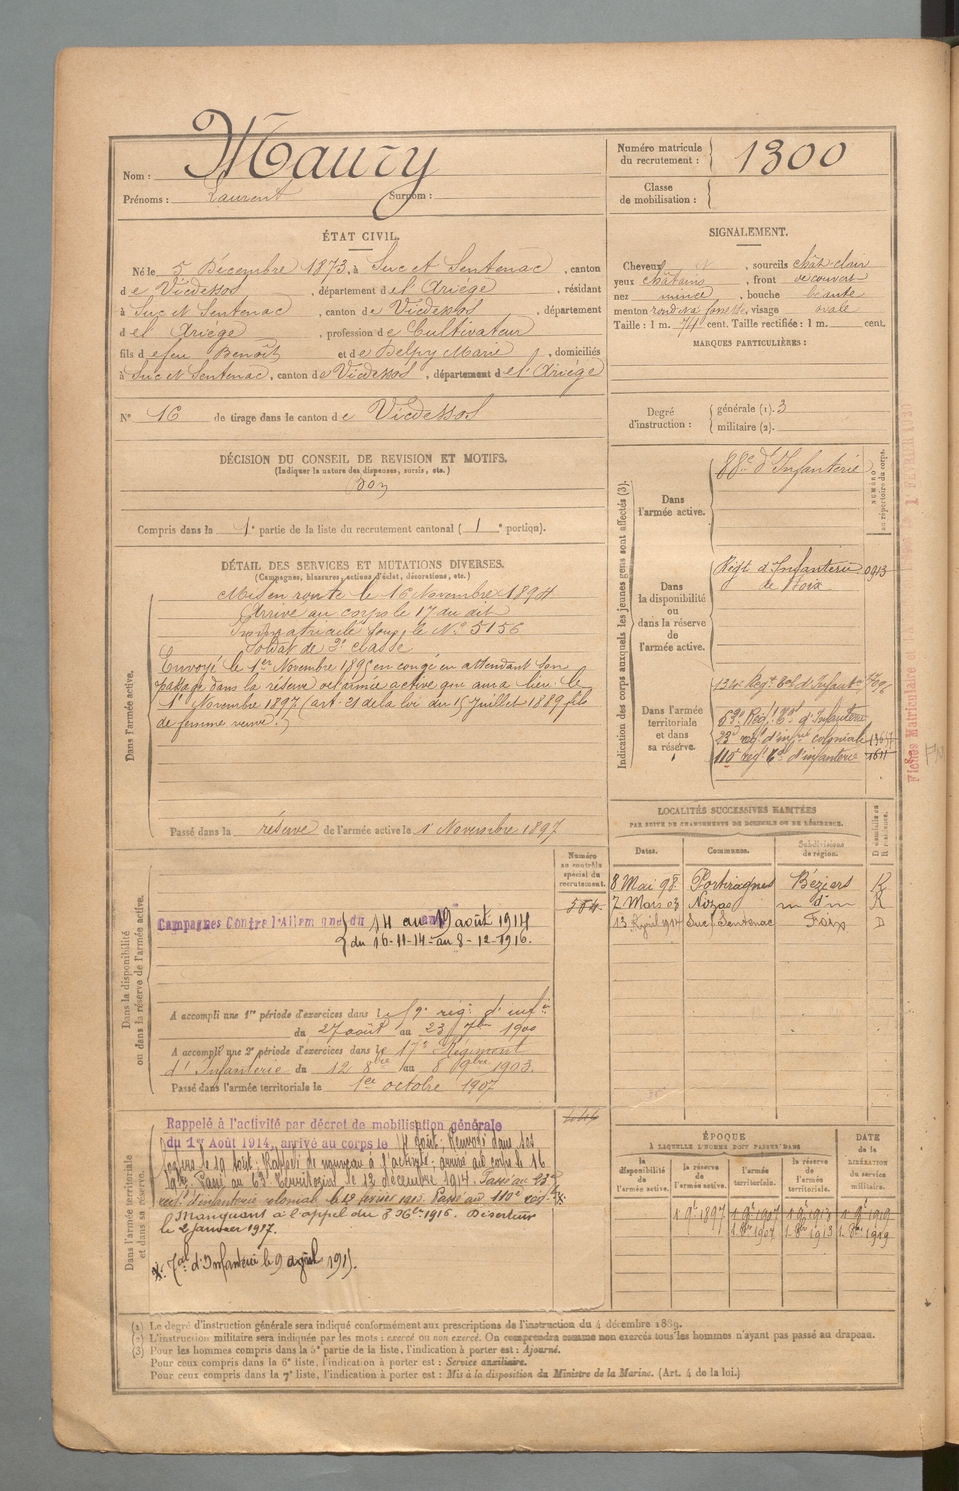 Nom : Maury
Prénoms : Laurent Surnom :
Numéro matricule du recrutement : 1300
Classe de mobilisation :
ÉTAT CIVIL.
Né le 5 Décembre 1873, à Suc et Sentenac, canton
de Vicdessos, département de l'Ariège, résidant
à Suc et Sentenac, canton de Vicdessos, département
de l'Ariège, profession de Cultivateur
fils de feu Benoît et de Delpy Marie, domiciliés
à Suc et Sentenac, canton de Vicdessos, département de l'Ariège
N° 16 de tirage dans le canton de Vicdessos
SIGNALEMENT.
Cheveux, sourcils chât-clair
yeux châtains, front découvert
nez mince, bouche béante
menton rond, visage ovale
Taille : 1 m. 74 cent. Taille rectifiée : 1 m. cent.
MARQUES PARTICULIÈRES :
Degré d'instruction : générale (1). 3
militaire (2).
DÉCISION DU CONSEIL DE REVISION ET MOTIFS.
(Indiquer la nature des dispenses, sursis, etc.)
Bon
Compris dans la 1e partie de la liste du recrutement cantonal ( 1 e portion).
DÉTAIL DES SERVICES ET MUTATIONS DIVERSES.
(Campagnes, blessures, actions d'éclat, décorations, etc.)
Dans l'armée active.
Mis en route le 16 Novembre 1894
Arrivé au corps le 17 du dit
Immatriculé sous le No 5156
Soldat de 2e classe
Envoyé le 1er Novembre 1895 en congé en attendant son
passage dans la réserve de l'armée active qui aura lieu le
1er Novembre 1897 (art. 21 de la loi du 15 juillet 1889 fils
de femme veuve.)
Passé dans la réserve de l'armée active le 1er Novembre 1897
Indication des corps auxquels les jeunes gens sont affectés (3).
NUMÉRO au répertoire du corps.
Dans l'armée active.
88e d'Infanterie
Dans la disponibilité ou dans la réserve de l'armée active.
Régt d'Infanterie 0913
de Foix
Dans l'armée territoriale et dans sa réserve.
134e Régt Tal d'Infanterie
63e Régt Tal d'Infanterie
23e régt d'infrie coloniale
110e régt Tal d'infanterie
LOCALITÉS SUCCESSIVES HABITÉES
PAR SUITE DE CHANGEMENTS DE DOMICILE OU DE RÉSIDENCE.
Dates. Communes. Subdivisions de région. D domicile ou R résidence.
8 Mai 98 Portiragnes Béziers R
7 Mars 03 R
13 Avril 1914 Suc Sentenac Foix D
Dans la disponibilité ou dans la réserve de l'armée active.
Numéro au contrôle spécial du recrutement.
Campagnes Contre l'Allemagne du 14 au 19 août 1914
du 16-11-14 au 8-12-1916.
A accompli une 1re période d'exercices dans le
du 27 août au 23 7bre 1900
A accompli une 2e période d'exercices dans le 17e Régiment
d'Infanterie du 12 8bre au 8 9bre 1903.
Passé dans l'armée territoriale le 1er octobre 1907
Dans l'armée territoriale et dans sa réserve.
Rappelé à l'activité par décret de mobilisation générale
du 1er Août 1914, arrivé au corps le 14 Août. Renvoyé dans ses
foyers le 19 Août. Rappelé de nouveau à l'activité, arrivé au corps le 16
9bre. Passé au 63e Territorial le 12 décembre 1914. Passé au 23e
régt d'infanterie coloniale. Passé au 110e régt
Manquant à l'appel du 8 Xbre 1916. Déserteur
le 2 janvier 1917.
Tal d'Infanterie le 9 avril 191
ÉPOQUE
À LAQUELLE L'HOMME DOIT PASSER DANS
la disponibilité de l'armée active. la réserve de l'armée active. l'armée territoriale. la réserve de l'armée territoriale.
DATE de la LIBÉRATION du service militaire.
1 9e 1897 1 9e 1907 1 9e 1913 1 9e 1919
1 8bre 1907 1 8bre 1913 1 8bre 1919
(1) Le degré d'instruction générale sera indiqué conformément aux prescriptions de l'instruction du 4 décembre 1889.
(2) L'instruction militaire sera indiquée par les mots : exercé ou non exercé. On comprendra comme non exercés tous les hommes n'ayant pas passé au drapeau.
(3) Pour les hommes compris dans la 5e partie de la liste, l'indication à porter est : Ajourné.
Pour ceux compris dans la 6e liste, l'indication à porter est : Service auxiliaire.
Pour ceux compris dans la 7e liste, l'indication à porter est : Mis à la disposition du Ministre de la Marine. (Art. 4 de la loi.)